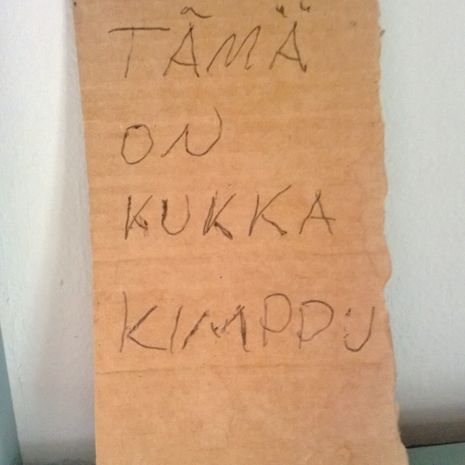 TÄMÄ
ON
KUKKA
KIMPPU